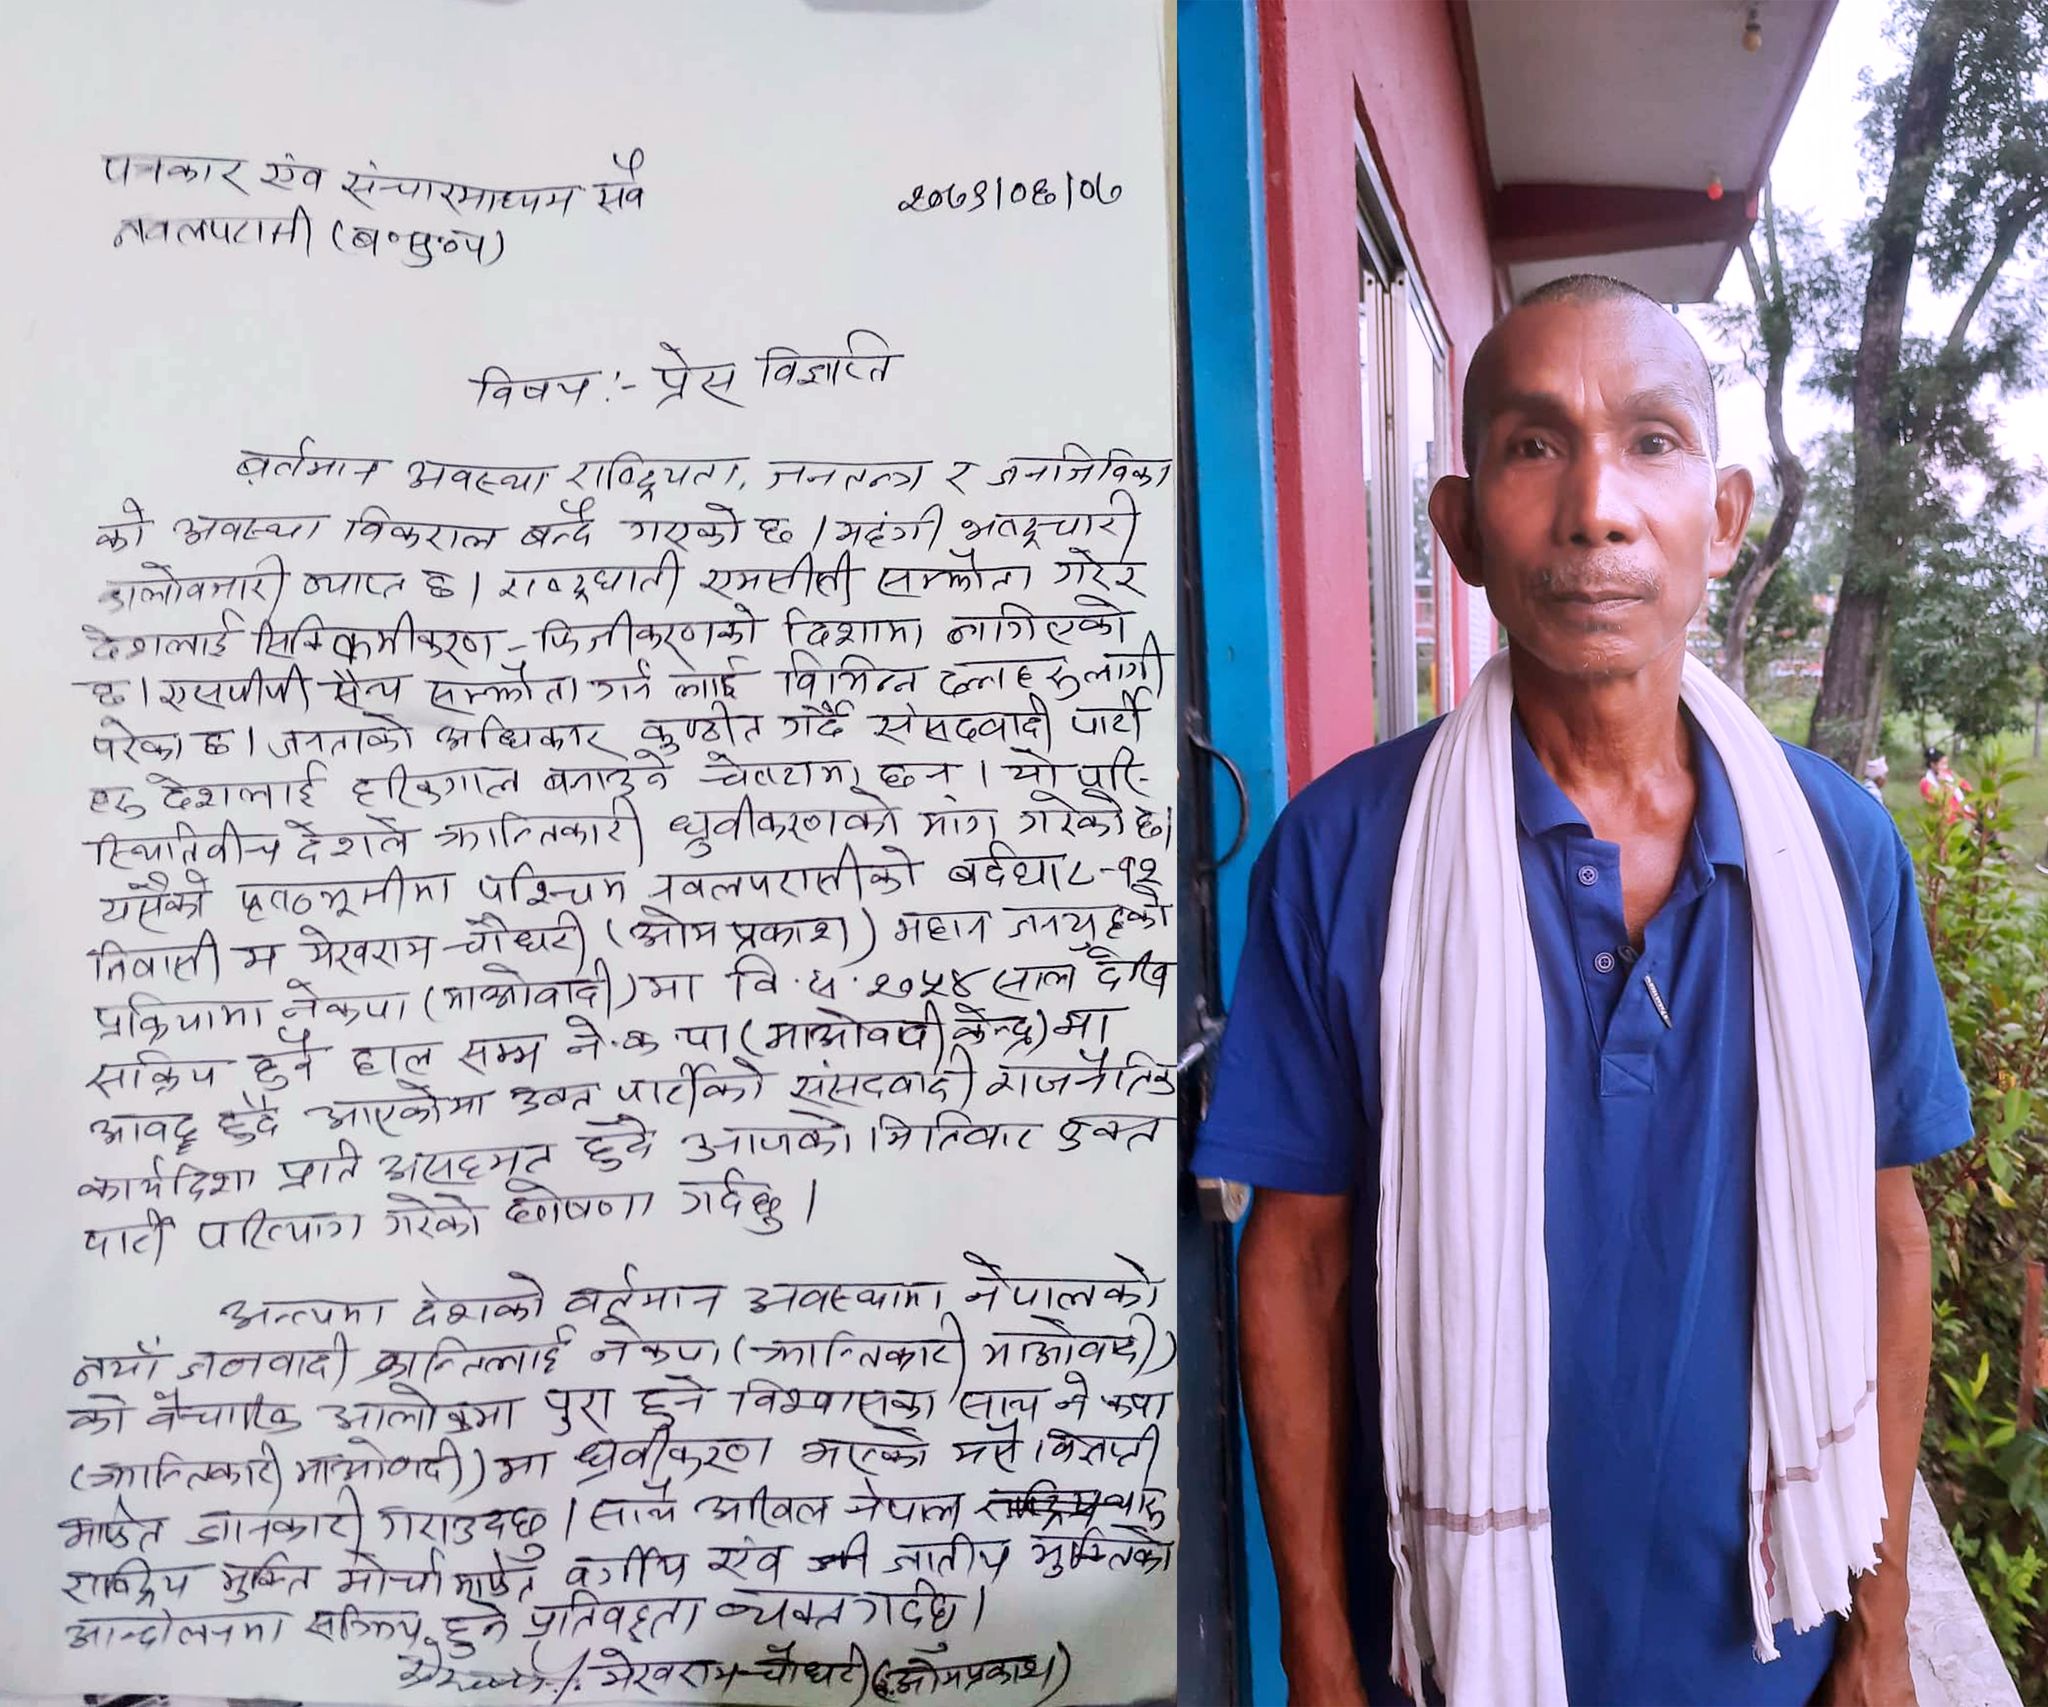 पत्रकार एंव संचारमाध्यम सवै
२०७९।०६।०७
नवलपरासी (ब॰सु॰प)
विषय :- प्रेस विज्ञप्ति
बर्तमान अवस्था राष्ट्रियता, जनतन्त्र र जनजिविका
को अवस्था विकराल बन्दै गएको छ । महंगी भ्रष्ट्रचारी
कालोवजारी व्याप्त छ । राष्ट्रघाती एमसीसी सम्झौता गरेर
देशलाई सिक्किमीकरण-फिजीकरणको दिशामा लागिएको
छ । एसपीपी सैन्य सम्झौता गर्न लाई विभिन्न दलहरु लागी
परेका छ । जनताको अधिकार कुण्ठीत गर्दै संसदवादी पार्टी
हरु देशलाई बनाउने चेष्टामा छन् । यो परि-
स्थितिवीच देशले क्रान्तिकारी ध्रुवीकरणको मांग गरेको छ।
यसैको पृष्ठभूमीमा पश्चिम नवलपरासीको बर्दघाट-१२
निवासी म भेखराम चौधरी (ओम प्रकाश) महान जनयुद्दको
प्रक्रियामा नेकपा (माओवादी) मा वि.स. २०५४ साल देखि
सक्रिय हुदै हाल सम्म ने.क.पा (माओवादी केन्द्र) मा
आवद्द हुदै आएकोमा उक्त पार्टीको संसदवादी राजनैतिक
कार्यदिशा प्रति असहमत हुदै आजको मितिवाट उक्त
पार्टी परित्याग गरेको घोषणा गर्दछु ।
अन्त्यमा देशको वर्तमान अवस्थामा नेपालको
नयाँ जनवादी क्रान्तिलाई नेकपा (क्रान्तिकारी माओवादी)
को वैचारिक आलोकमा पुरा हुने विश्वासका साथ नेकपा
(क्रान्तिकारी माओवादी) मा ध्रुवीकरण भएको यसै विज्ञप्ती
मार्फत जानकारी गराउदछु । साथै अखिल नेपाल
राष्ट्रिय मुक्ति मोर्चा मार्फत वर्गीय एंव जातीय मुक्तिको
आन्दोलनमा सक्रिय हुने प्रतिवद्दता व्यक्त गर्दछु ।
भेखराम चौधरी (ओमप्रकाश)